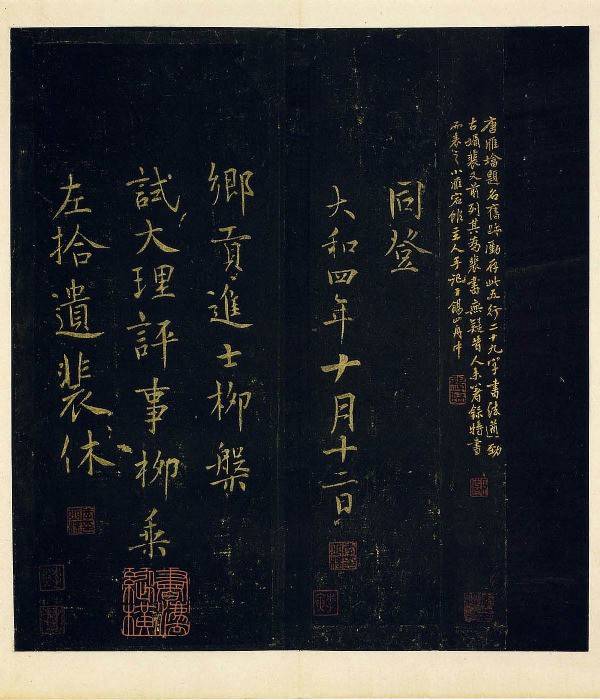 唐雁塔題名舊跡廑存此五行二十九字書法遒勁
古媚裴又前列其為裴書無疑昔人未著錄特書
而表之小雁宕館主人手記于錫山舟中
同登
大和四年十月十二日
鄉貢進士柳槃
試大理評事柳乘
左拾遺裴休